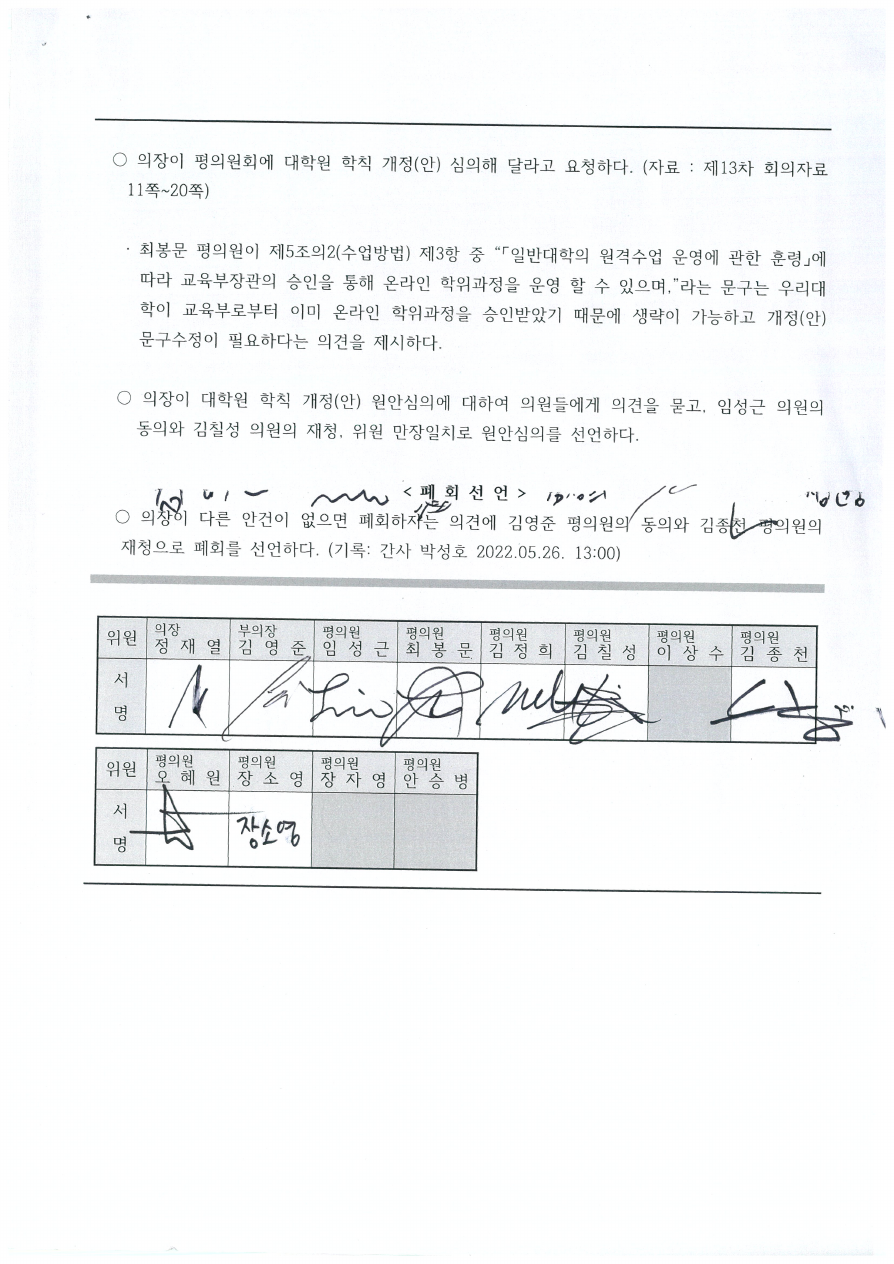 ○ 의장이 평의원회에 대학원 학칙 개정(안) 심의해 달라고 요청하다. (자료 : 제13차 회의자료
11쪽~20쪽)
· 최봉문 평의원이 제5조의2(수업방법) 제3항 중 “「일반대학의 원격수업 운영에 관한 훈령」에
따라 교육부장관의 승인을 통해 온라인 학위과정을 운영 할 수 있으며,”라는 문구는 우리대
학이 교육부로부터 이미 온라인 학위과정을 승인받았기 때문에 생략이 가능하고 개정(안)
문구수정이 필요하다는 의견을 제시하다.
○ 의장이 대학원 학칙 개정(안) 원안심의에 대하여 의원들에게 의견을 묻고, 임성근 의원의
동의와 김칠성 의원의 재청, 위원 만장일치로 원안심의를 선언하다.
< 폐회선언 >
○ 의장이 다른 안건이 없으면 폐회하자는 의견에 김영준 평의원의 동의와 김종천 평의원의
재청으로 폐회를 선언하다. (기록: 간사 박성호 2022.05.26. 13:00)
위원 의장 부의장 평의원 평의원 평의원 평의원 평의원 평의원
정재열 김영준 임성근 최봉문 김정희 김칠성 이상수 김종천
서명
위원 평의원 평의원 평의원 평의원
오혜원 장소영 장자영 안승병
서명 장소영